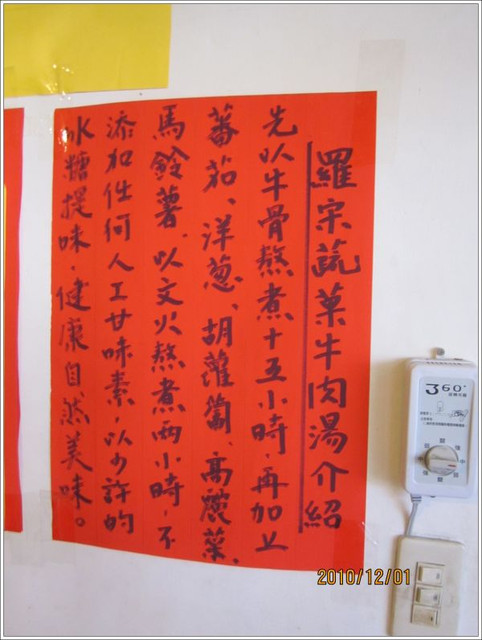 羅宋蔬菓牛肉湯介紹
先以牛骨熬煮十五小時,再加上
蕃茄、洋葱、胡蘿蔔、高麗菜、
馬鈴薯,以文火熬煮兩小時,不
添加任何人工甘味素,以少許的
冰糖提味,健康自然美味。
360°
2010/12/01